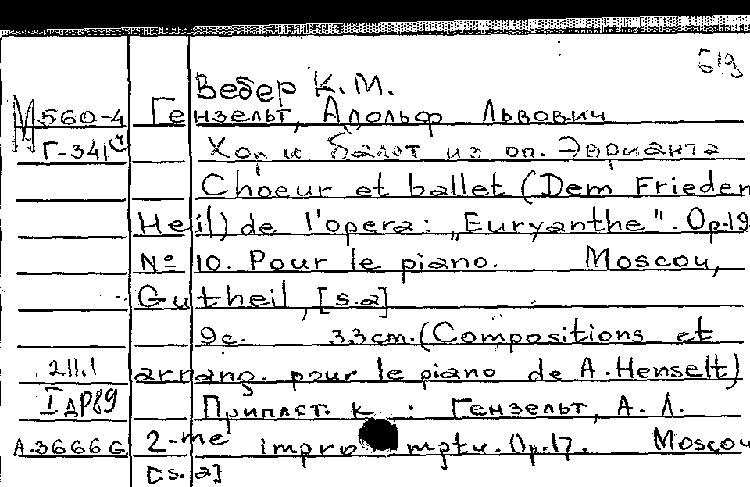 619
Вебер К.М.
М560-4 Гензельт, Адольф Львович
Г-341 Хор и балет из оп. Эврианта
Choeur et ballet (Dem Frieden
Heil) de l'opera: „Euryanthe". Op.19
№ 10. Pour le piano. Moscou,
Gutheil, [s.a]
9с. 33cm. (Compositions et
211.1 arrang. pour le piano de A. Henselt)
I др89 Приплет. к : Гензельт, А. Л.
A.3666 G 2-me impromptu. Op.17. Moscou
[s.a]